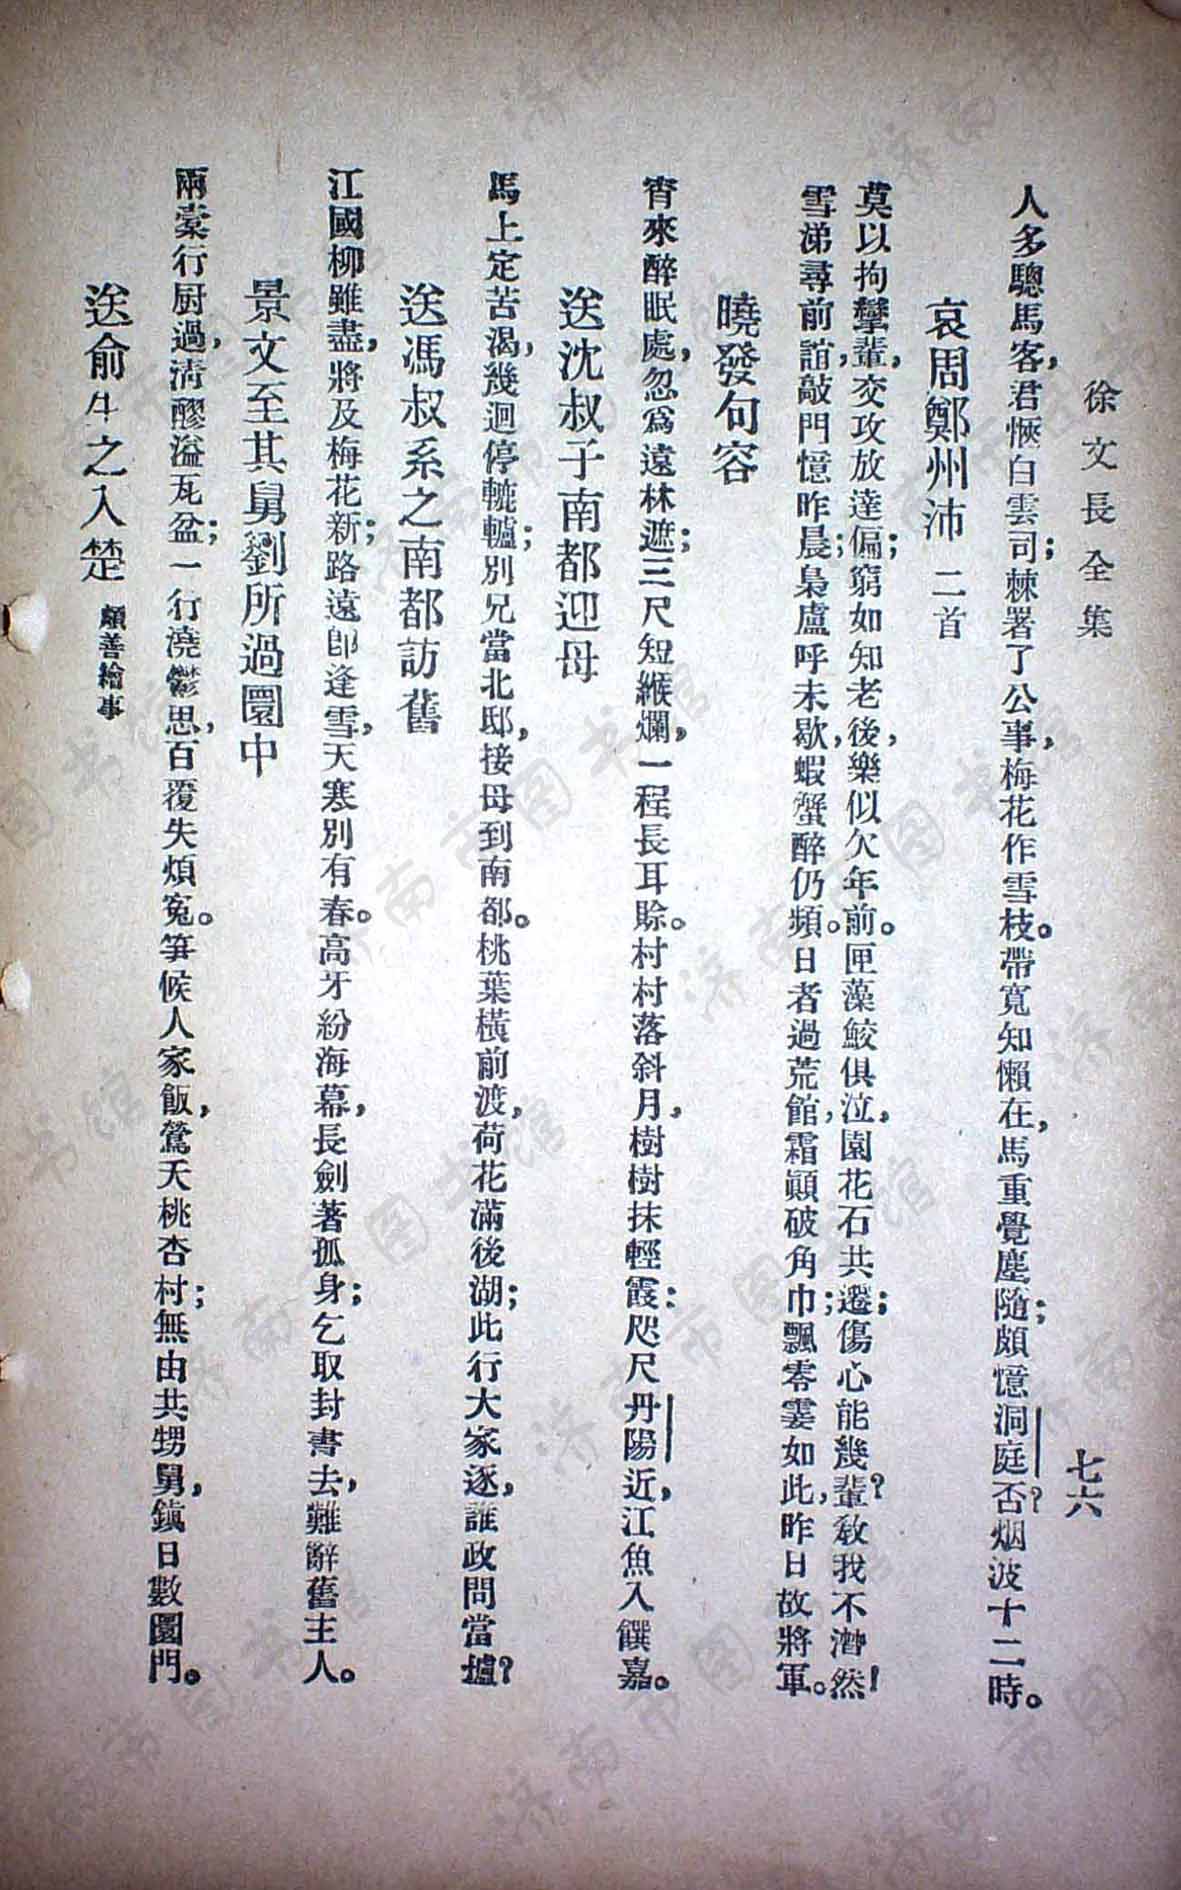 徐文長全集
七六
人多驄馬客，君愜白雲司；棘署了公事，梅花作雪枝。帶寬知懶在，馬重覺塵隨；頗憶洞庭否？烟波十二時。
哀周鄭州沛 二首
莫以拘攣輩，交攻放達偏；窮如知老後，樂似欠年前。匣藻鮫俱泣，園花石共遷；傷心能幾輩？教我不潸然！
雪涕尋前誼，敲門憶昨晨；梟盧呼未歇，蝦蟹醉仍頻。日者過荒館，霜顚破角巾；飄零霎如此，昨日故將軍。
曉發句容
宵來醉眠處，忽爲遠林遮；三尺短緱爛，一程長耳賒。村村落斜月，樹樹抹輕霞；咫尺丹陽近，江魚入饌嘉。
送沈叔子南都迎母
馬上定苦渴，幾迴停轆轤；別兄當北邸，接母到南都。桃葉橫前渡，荷花滿後湖；此行大家逐，誰政問當壚？
送馮叔系之南都訪舊
江國柳雖盡，將及梅花新；路遠卽逢雪，天寒別有春。高牙紛海幕，長劍著孤身；乞取封書去，難辭舊主人。
景文至其舅劉所過圜中
兩橐行厨過，淸醪溢瓦盆；一行澆鬱思，百覆失煩寃。筭候人家飯，鶯夭桃杏村；無由共甥舅，鎮日數圜門。
送俞 之入楚 頗善繪事
济南市图书馆